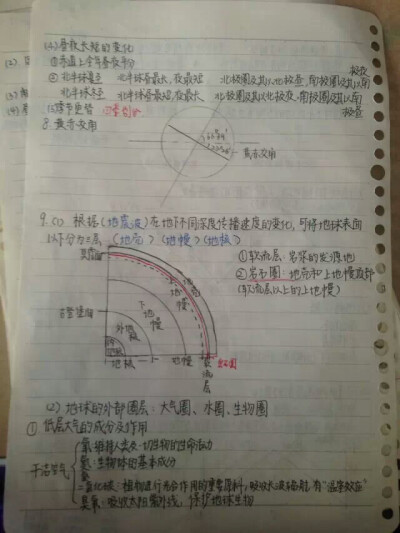 (4)昼夜长短的变化
①赤道上全年昼夜平分
②北半球夏至 北半球昼最长,夜最短 北极圈及其以北极昼,南极圈及其以南极夜
北半球冬至 北半球昼最短,夜最长 北极圈及其以北极夜,南极圈及其以南极昼
8.黄赤交角
黄赤交角
9.(1) 根据(地震波)在地下不同深度传播速度的变化,可将地球表面
以下分为三层 (地壳)(地幔)(地核)
①软流层:岩浆的发源地
②岩石圈:地壳和上地幔顶部
(软流层以上的上地幔)
莫霍面
古登堡面
地壳
上地幔
下地幔
外地核
内地核
地核
地幔
软流层
岩石圈
(2) 地球的外部圈层:大气圈、水圈、生物圈
① 低层大气的成分及作用
干洁空气
氧:维持人类及一切生物的生命活动
氮:生物体的基本成分
二氧化碳:植物进行光合作用的重要原料;吸收长波辐射,有"温室效应"
臭氧:吸收太阳紫外线,保护地球生物